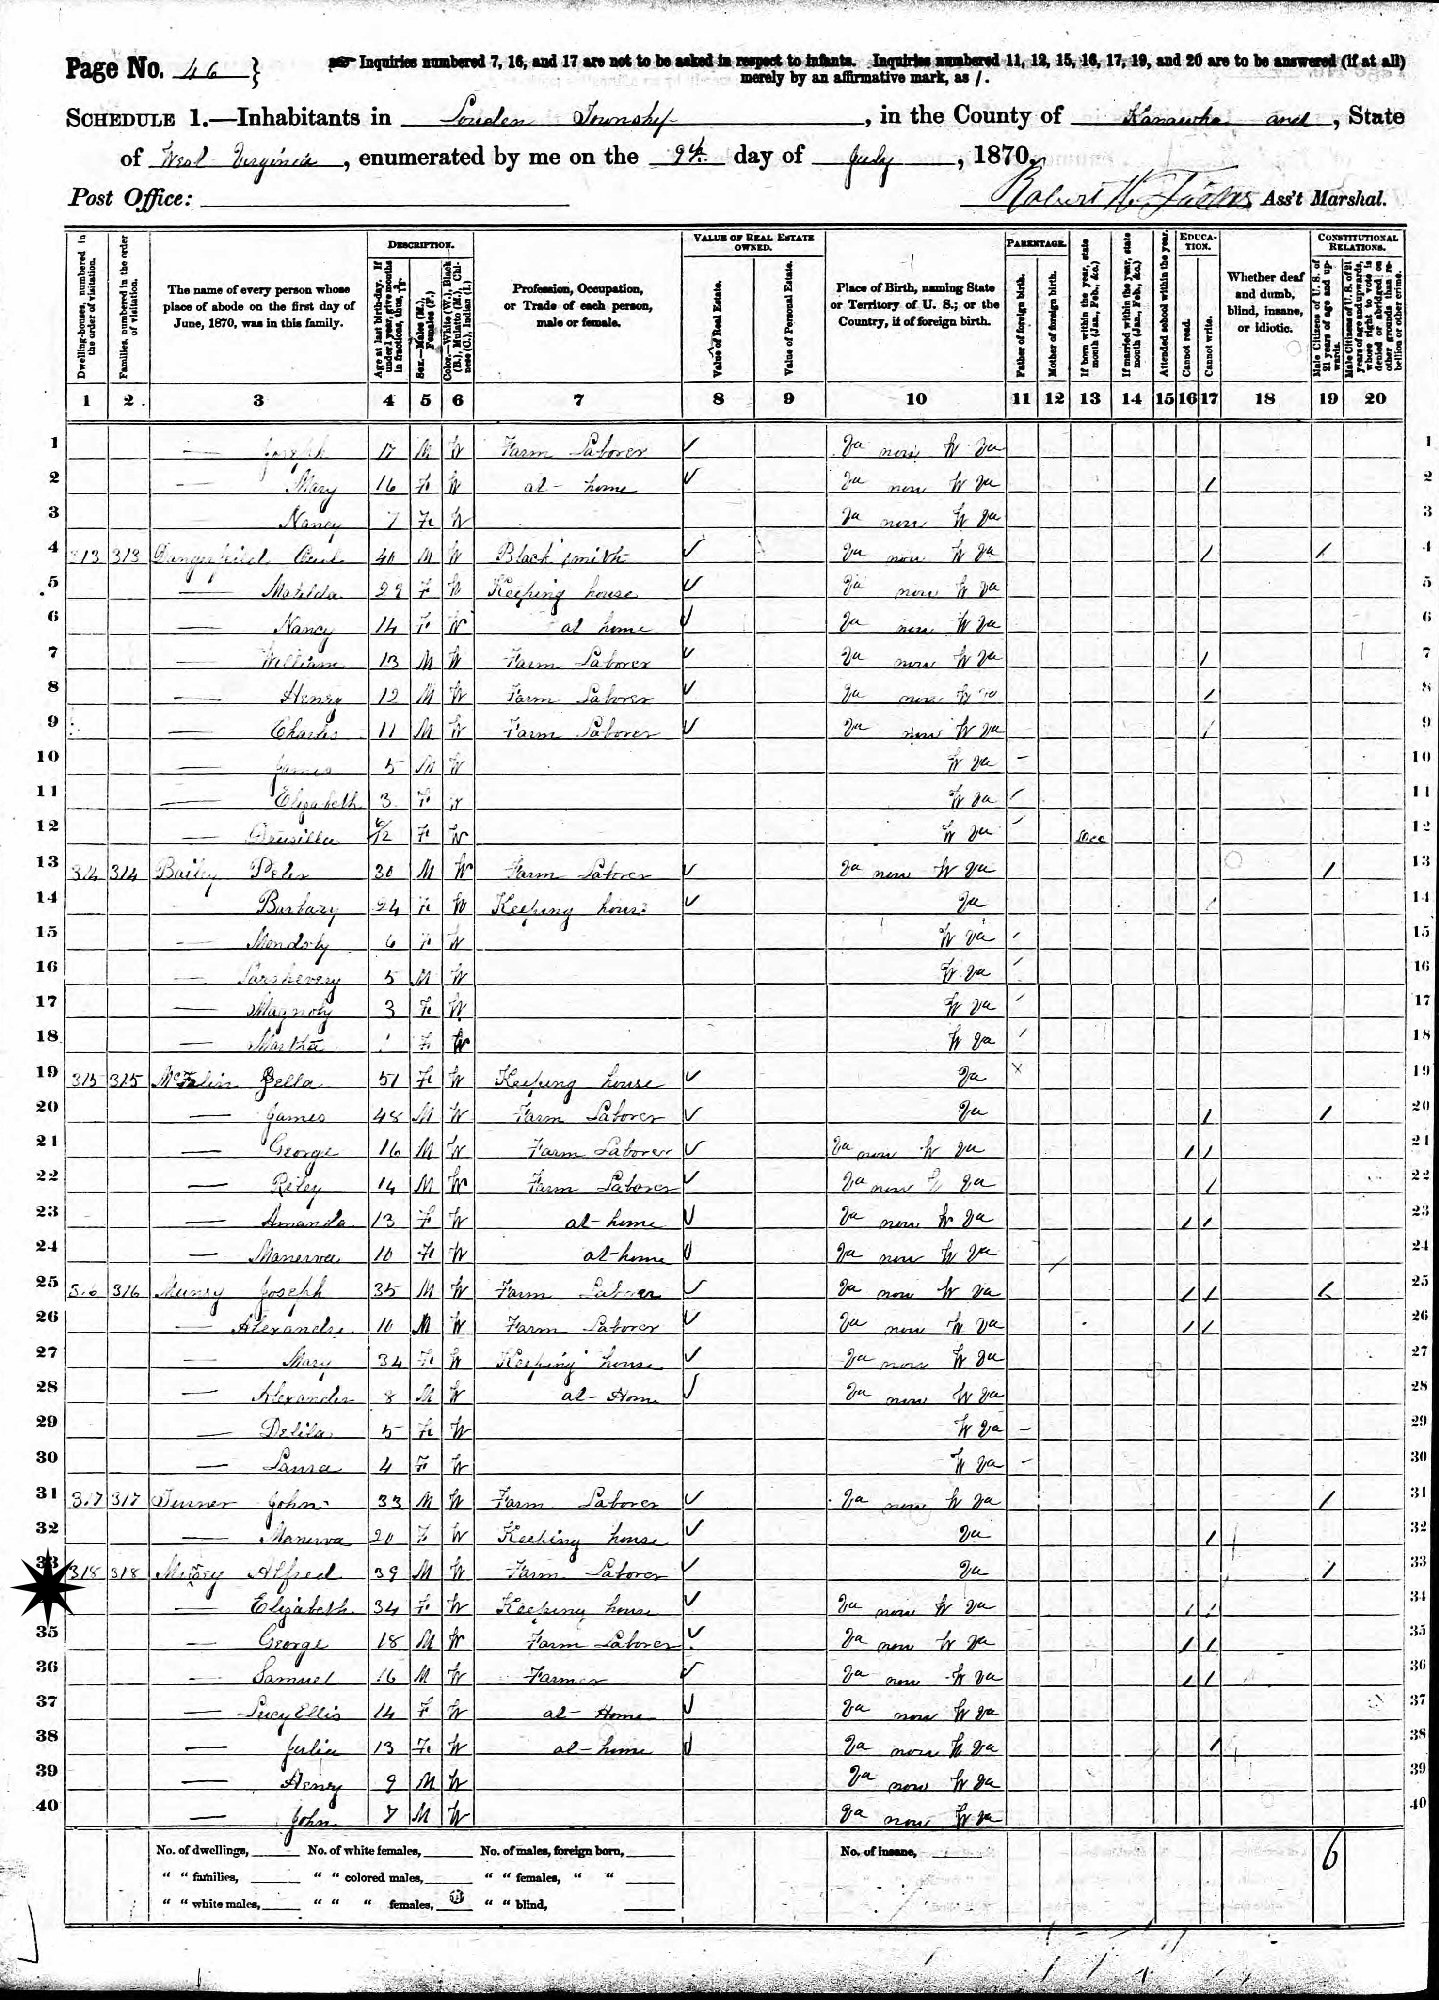 Page No. 46 } Inquiries numbered 7, 16, and 17 are not to be asked in respect to infants. Inquiries numbered 11, 12, 15, 16, 17, 19, and 20 are to be answered (if at all)
merely by an affirmative mark, as /.
SCHEDULE 1.—Inhabitants in Louden Township, in the County of Kanawha and, State
of West Virginia, enumerated by me on the 9th day of July, 1870.
Post Office: Robert H. Ass't Marshal.
DESCRIPTION. VALUE OF REAL ESTATE OWNED. PARENTAGE. EDUCATION. CONSTITUTIONAL RELATIONS.
Dwelling-houses, numbered in the order of visitation.
Families, numbered in the order of visitation.
The name of every person whose place of abode on the first day of June, 1870, was in this family.
Age at last birth-day. If under 1 year, give months in fractions, thus, 3/12.
Sex.—Males (M.), Females (F.)
Color.—White (W.), Black (B.), Mulatto (M.), Chinese (C.), Indian (I.)
Profession, Occupation, or Trade of each person, male or female.
Value of Real Estate.
Value of Personal Estate.
Place of Birth, naming State or Territory of U. S.; or the Country, if of foreign birth.
Father of foreign birth.
Mother of foreign birth.
If born within the year, state month (Jan., Feb., &c.)
If married within the year, state month (Jan., Feb., &c.)
Attended school within the year.
Cannot read.
Cannot write.
Whether deaf and dumb, blind, insane, or idiotic.
Male Citizens of U. S. of 21 years of age and upwards.
Male Citizens of U. S. of 21 years of age and upwards, whose right to vote is denied or abridged on other grounds than rebellion or other crime.
1 2 3 4 5 6 7 8 9 10 11 12 13 14 15 16 17 18 19 20
1 — Joseph 17 M W Farm Laborer ✓ Va now W Va 1
2 — Mary 16 F W at home ✓ Va now W Va / 2
3 — Nancy 7 F W Va now W Va 3
4 313 313 Dangerfield 40 M W Black smith ✓ Va now W Va / / 4
5 — Matilda F W Keeping house ✓ Va now W Va 5
6 — Nancy 14 F W at home ✓ Va now W Va 6
7 — William 13 M W Farm Laborer ✓ Va now W Va / 7
8 — Henry 12 M W Farm Laborer ✓ Va now W Va / 8
9 — Charles 11 M W Farm Laborer ✓ Va now W Va / 9
10 — James 5 M W W Va 10
11 — Elizabeth 3 F W W Va 11
12 — Drusilla F W W Va Dec 12
13 314 314 Bailey Peter 30 M W Farm Laborer ✓ Va now W Va / 13
14 — Barbary 24 F W Keeping house ✓ Va / 14
15 — 6 F W W Va 15
16 — 5 M W W Va 16
17 — Magnoly 3 F W W Va 17
18 — Martha 1 F W W Va 18
19 315 315 51 F W Keeping house ✓ Va x 19
20 — James 48 M W Farm Laborer ✓ Va / / 20
21 — George 16 M W Farm Laborer ✓ Va now W Va / / 21
22 — Riley 14 M W Farm Laborer ✓ Va now W Va / 22
23 — Amanda 13 F W at home ✓ Va now W Va / / 23
24 — Manerva 10 F W at home ✓ Va now W Va / 24
25 316 316 Muncy Joseph 35 M W Farm Laborer ✓ Va now W Va / / / 25
26 — 10 M W Farm Laborer ✓ Va now W Va / / 26
27 — Mary 34 F W Keeping house ✓ Va now W Va 27
28 — Alexander 8 M W at Home ✓ Va now W Va 28
29 — Delila 5 F W W Va 29
30 — Laura 4 F W W Va 30
31 317 317 Turner John 33 M W Farm Laborer ✓ Va now W Va / 31
32 — Manerva 20 F W Keeping house ✓ Va / 32
33 318 318 Alfred 39 M W Farm Laborer ✓ Va / 33
— Elizabeth 34 F W Keeping house ✓ Va now W Va / / 34
35 — George 18 M W Farm Laborer ✓ Va now W Va / / 35
36 — Samuel 16 M W Farmer ✓ Va now W Va / / 36
37 — Lucy Ellis 14 F W at Home ✓ Va now W Va 37
38 — Julia 13 F W at home ✓ Va now W Va / 38
39 — Henry 9 M W Va now W Va 39
40 — John 7 M W Va now W Va 40
No. of dwellings, No. of white females, No. of males, foreign born, No. of insane, 6
" " families, " " colored males, " " females, " "
" " white males, " " " females, " " blind,